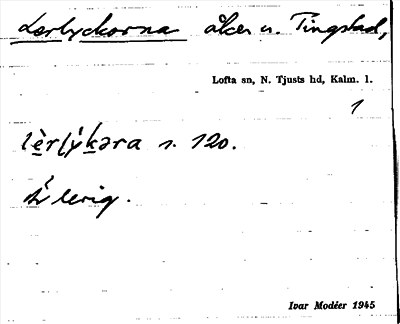 Lerlyckorna åker u. Tingstad,
Lofta sn, N. Tjusts hd, Kalm. l.
1
lèrlýkəra s. 120.
Är lerig.
Ivar Modéer 1945